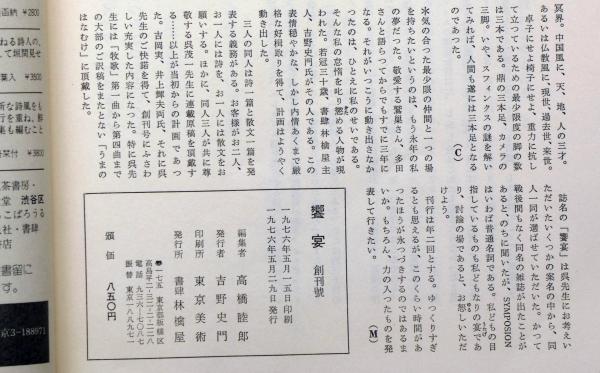 冥界。中国風に、天、地、人の三才。
あるいは仏教風に、現世、過去世、来世。
卓子にせよ椅子にせよ、重力に抗し
て立っているための最少限度の脚の数
は三本である。鼎の三本足、カメラの
三脚。いや、スフィンクスの謎を解い
てみれば、人間も遂には三本足となる
のであった。
(C)
水気の合った最少限の仲間と一つの場
を持ちたいというのは、もう永年の私
の夢だった。敬愛する鷲巣さん、多田
さんと語らってからでもすでに三年に
なる。それがいっこうに動き出さなか
ったのは、ひとえに私のせいである。
そんな私の怠惰を叱り懲める人物が現
われた。若冠三十歳、書肆林檎屋主
人、吉野史門氏がその人である。この
表情穏やかな、しかし内実あくまで厳
格な好相取りを得て、計画はようやく
動き出した。
三人の同人は詩一篇と散文一篇を発
表する義務がある。お客様がお二人、
お一人には詩を、お一人には散文をお
願いする。ほかに、同人三人が共に尊
敬する呉茂一先生に連載原稿を頂戴す
る……以上が当初からの計画であっ
た。吉岡実、井上輝夫両氏、それに呉
先生のご快諾を得て、創刊号にふさわ
しい充実した内容になった。特に呉先
生には「秋歌」第一曲から第四曲まで
の大部のご訳稿をまたとない「うまの
はなむけ」に頂戴した。
誌名の「饗宴」は呉先生にお考えい
ただいたいくつかの案名の中から、同
人一同が選ばせていただいた。かつて
戦後間もなく同名の雑誌が出たことが
あると、のちに聞いたが、SYMPOSION
はいわば普通名詞である。私どもの目
指しているものも私どもなりの宴であ
り、討論の場であると、お恕しいただ
けよう。
刊行は年二回とする。ゆっくりすぎ
るとも思えるが、このくらい時間があ
ったほうが永つづきするのではあるま
いか。もちろん、力の入ったものを発
表して行きたい。
(M)
饗宴 創刊號
一九七六年五月一五日印刷
一九七六年五月二〇日発行
編集者 高橋睦郎
発行者 吉野史門
印刷所 東京美術
発行所 書肆林檎屋
〒一七五 東京都板橋区
高島平二-三二-二-二二八
電話 九三六-七〇八七
振替 東京一-八八九七一
頒価 八五〇円
¥2800
¥3500
¥3800
渋谷区
京3-188971